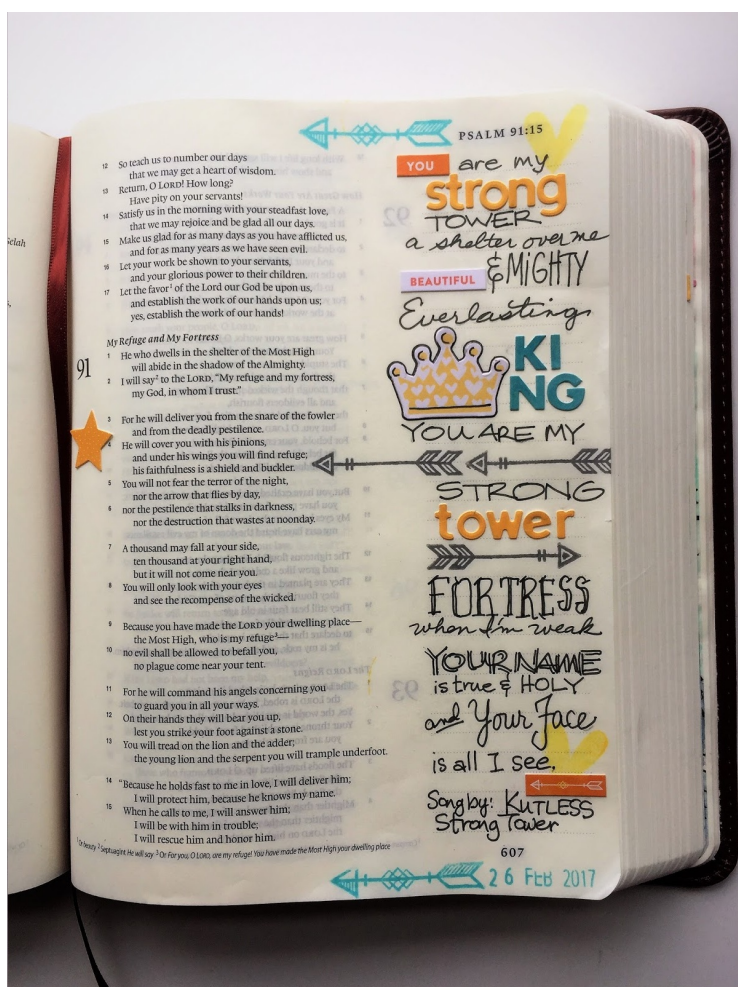 selah
PSALM 91:15
12 So teach us to number our days
that we may get a heart of wisdom.
13 Return, O LORD! How long?
Have pity on your servants!
14 Satisfy us in the morning with your steadfast love,
that we may rejoice and be glad all our days.
15 Make us glad for as many days as you have afflicted us,
and for as many years as we have seen evil.
16 Let your work be shown to your servants,
and your glorious power to their children.
17 Let the favor1 of the Lord our God be upon us,
and establish the work of our hands upon us;
yes, establish the work of our hands!
My Refuge and My Fortress
91
1 He who dwells in the shelter of the Most High
will abide in the shadow of the Almighty.
2 I will say2 to the LORD, “My refuge and my fortress,
my God, in whom I trust.”
3 For he will deliver you from the snare of the fowler
and from the deadly pestilence.
4 He will cover you with his pinions,
and under his wings you will find refuge;
his faithfulness is a shield and buckler.
5 You will not fear the terror of the night,
nor the arrow that flies by day,
6 nor the pestilence that stalks in darkness,
nor the destruction that wastes at noonday.
7 A thousand may fall at your side,
ten thousand at your right hand,
but it will not come near you.
8 You will only look with your eyes
and see the recompense of the wicked.
9 Because you have made the LORD your dwelling place—
the Most High, who is my refuge3—
10 no evil shall be allowed to befall you,
no plague come near your tent.
11 For he will command his angels concerning you
to guard you in all your ways.
12 On their hands they will bear you up,
lest you strike your foot against a stone.
13 You will tread on the lion and the adder;
the young lion and the serpent you will trample underfoot.
14 “Because he holds fast to me in love, I will deliver him;
I will protect him, because he knows my name.
15 When he calls to me, I will answer him;
I will be with him in trouble;
I will rescue him and honor him.
1 Or beauty 2 Septuagint He will say 3 Or For you, O LORD, are my refuge! You have made the Most High your dwelling place
YOU are my
strong
TOWER
a shelter over me
BEAUTIFUL & MiGHTY
Everlasting
KI
NG
YOU ARE MY
STRONG
tower
FORTRESS
when I'm weak
YOUR NAME
is true & HOLY
and Your Face
is all I see.
Song by: KUTLESS
Strong Tower
607
26 FEB 2017